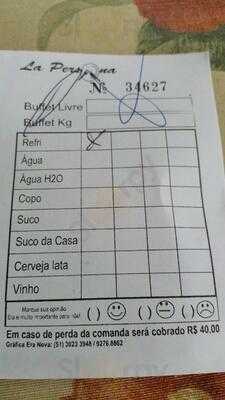 La Persona
Nº 34627
Buffet Livre
Buffet Kg
Refri X
Água
Água H2O
Copo
Suco
Suco da Casa
Cerveja lata
Vinho
Marque sua opinião
Ela é muito importante para nós! ( ) ( ) ( )
Em caso de perda da comanda será cobrado R$ 40,00
Gráfica Era Nova: (51) 3023 3948 / 9276.8862